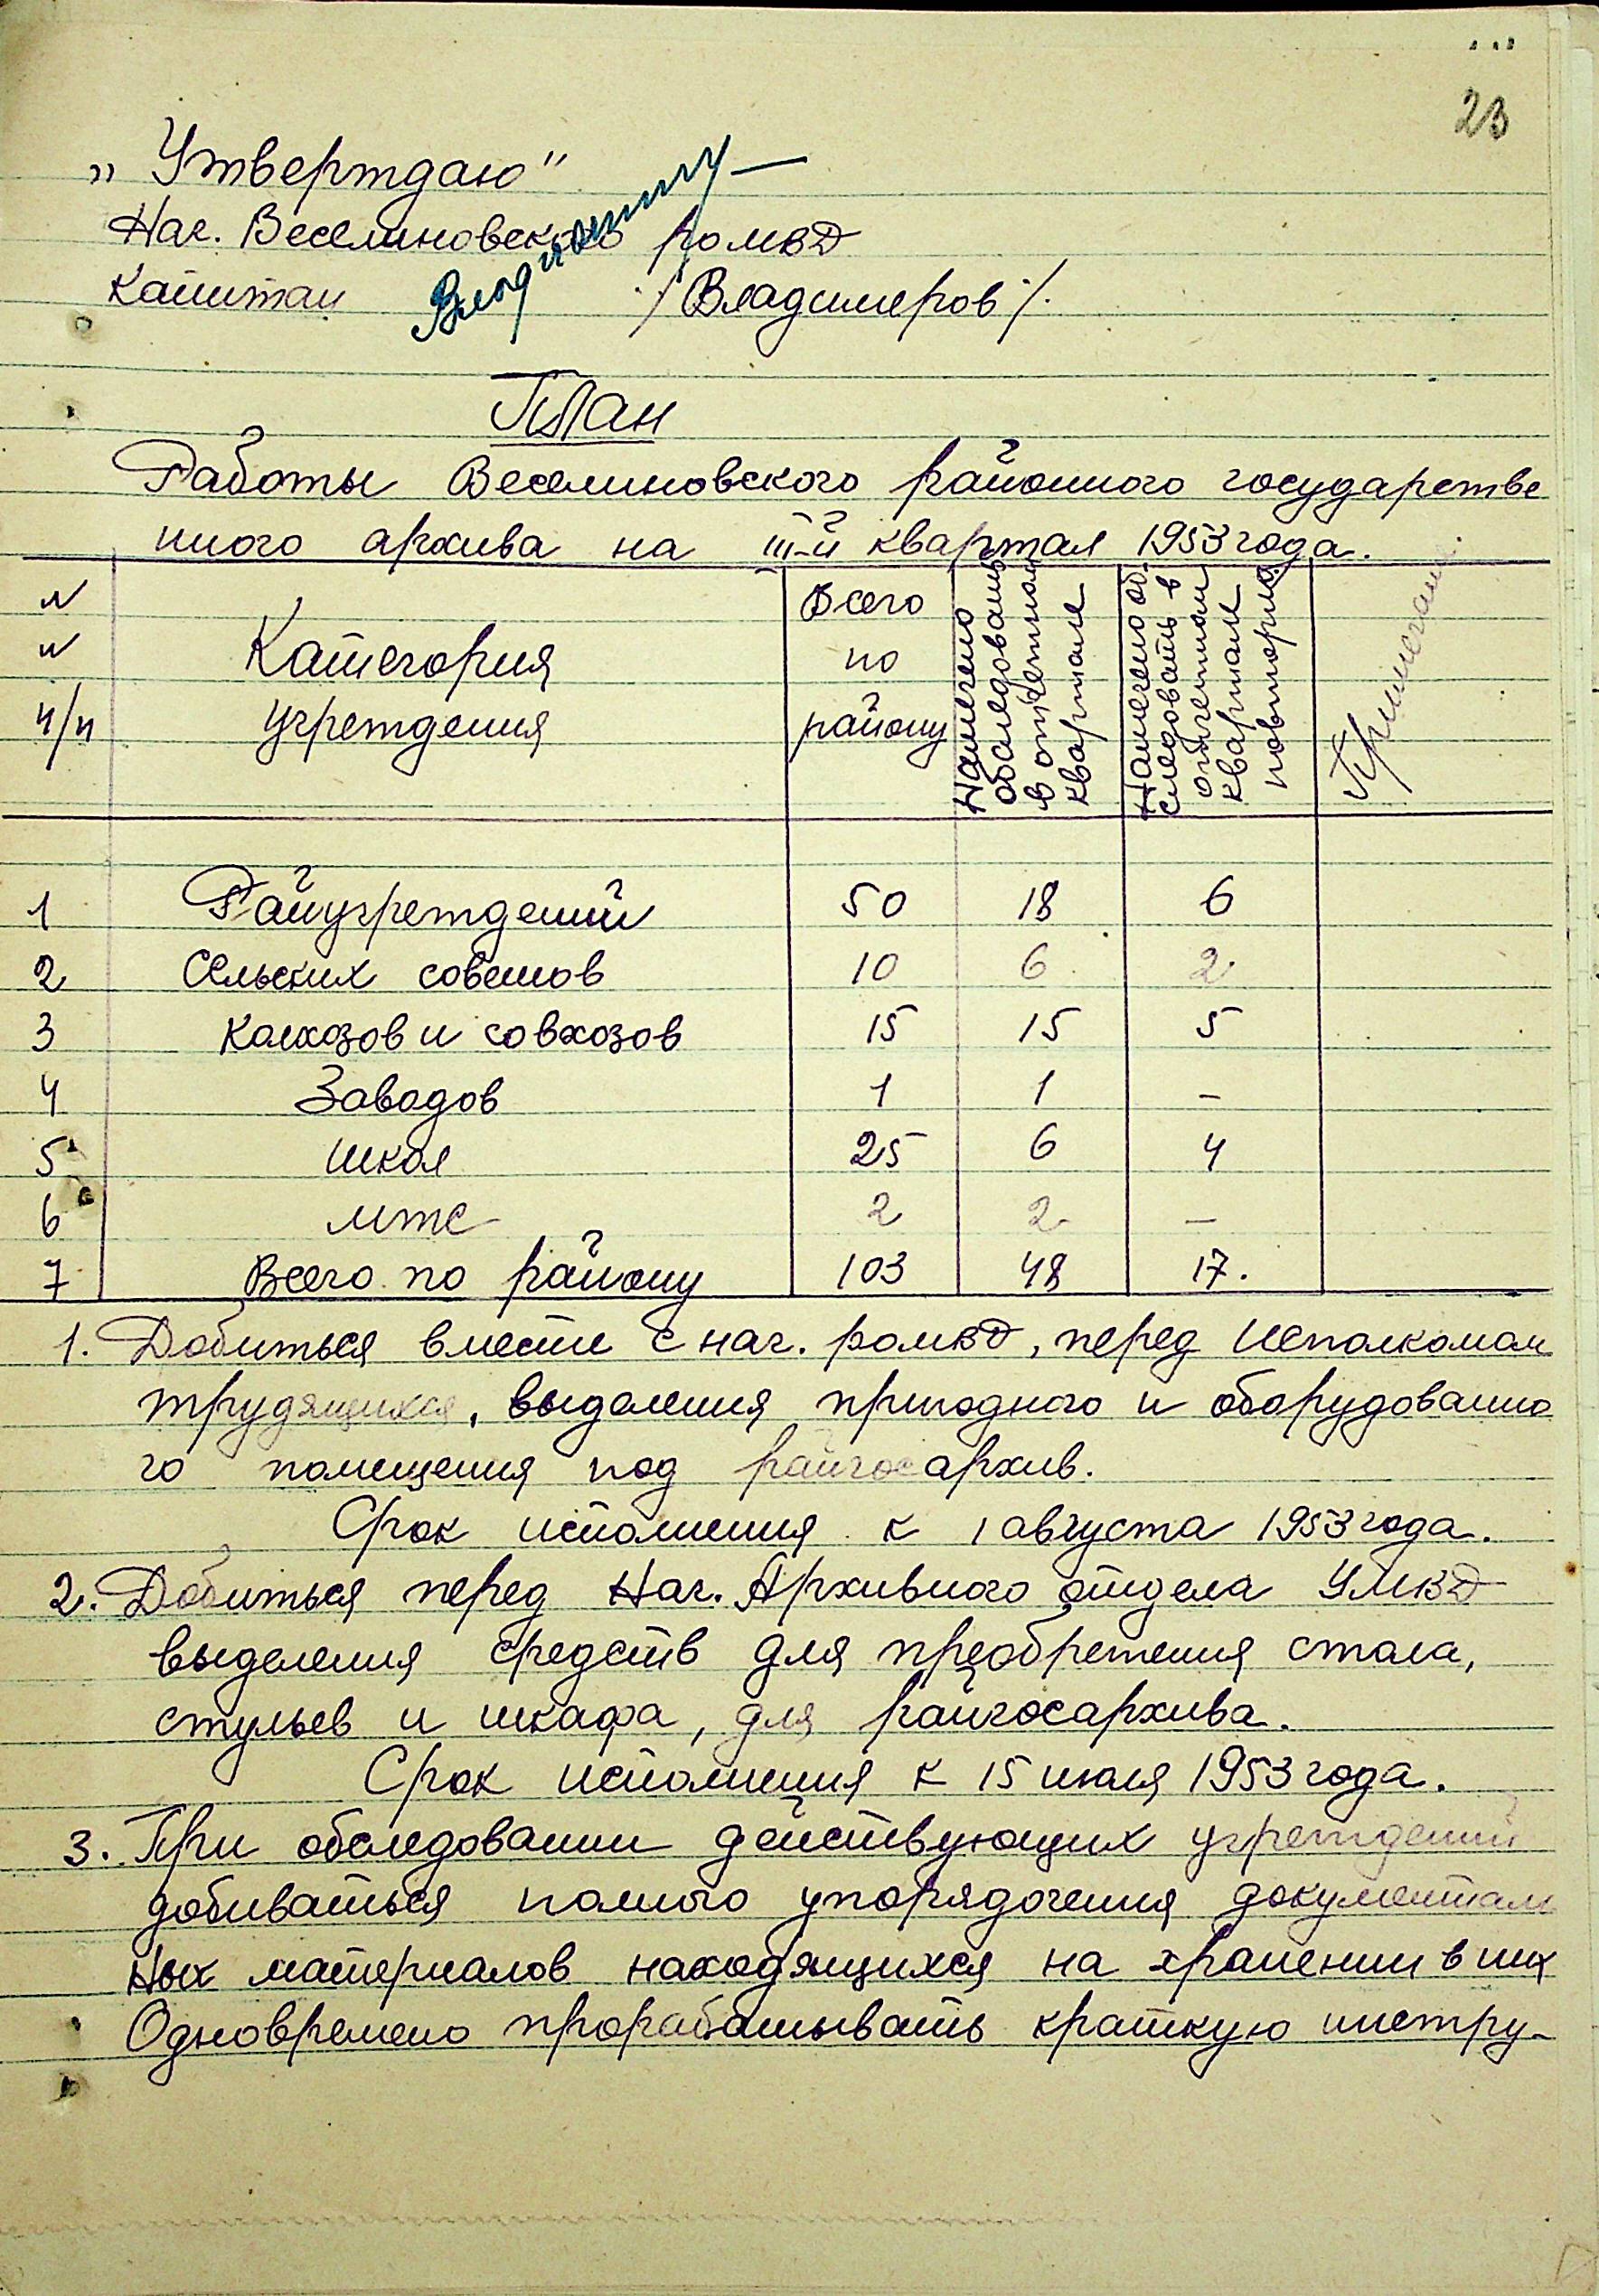 23
„Утверждаю"
Нач. Веселиновского РОМВД
Капитан /Владимеров/.
План
Работы Веселиновского районного государстве
нного архива на III-й квартал 1953 года.
№
№
п/п
Категория
учреждения
Всего
по
району
Намечено
обследовать
в отчетном
квартале
Намечено об.
следовать в
отчетном
квартале
повторно.
Примечание
1 Райучреждений 50 18 6
2 Сельских советов 10 6 2
3 Колхозов и совхозов 15 15 5
4 Заводов 1 1 –
5 Школ 25 6 4
6 МТС 2 2 –
7 Всего по району 103 48 17.
1. Добиться вмести с нач. РОМВД, перед Исполкомом
трудящихся, выделения пригодного и оборудованно
го помещения под райгосархив.
Срок исполнения к 1 августа 1953 года.
2. Добиться перед Нач. Архивного отдела УМВД
выделения средств для преобретения стола,
стульев и шкафа, для райгосархива.
Срок исполнения к 15 июля 1953 года.
3. При обследовании действующих учреждений
добиваться полного упорядочения документаль
ных материалов находящихся на хранении в них
Одновремено прорабатывать краткую инстру-